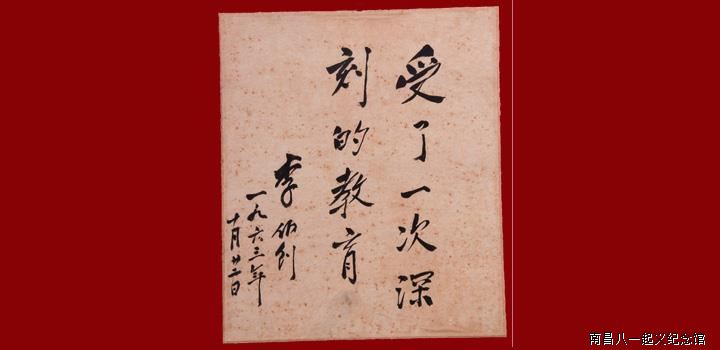 受了一次深
刻的教育
李伯钊
一九六三年
十月廿二日
南昌八一起义纪念馆